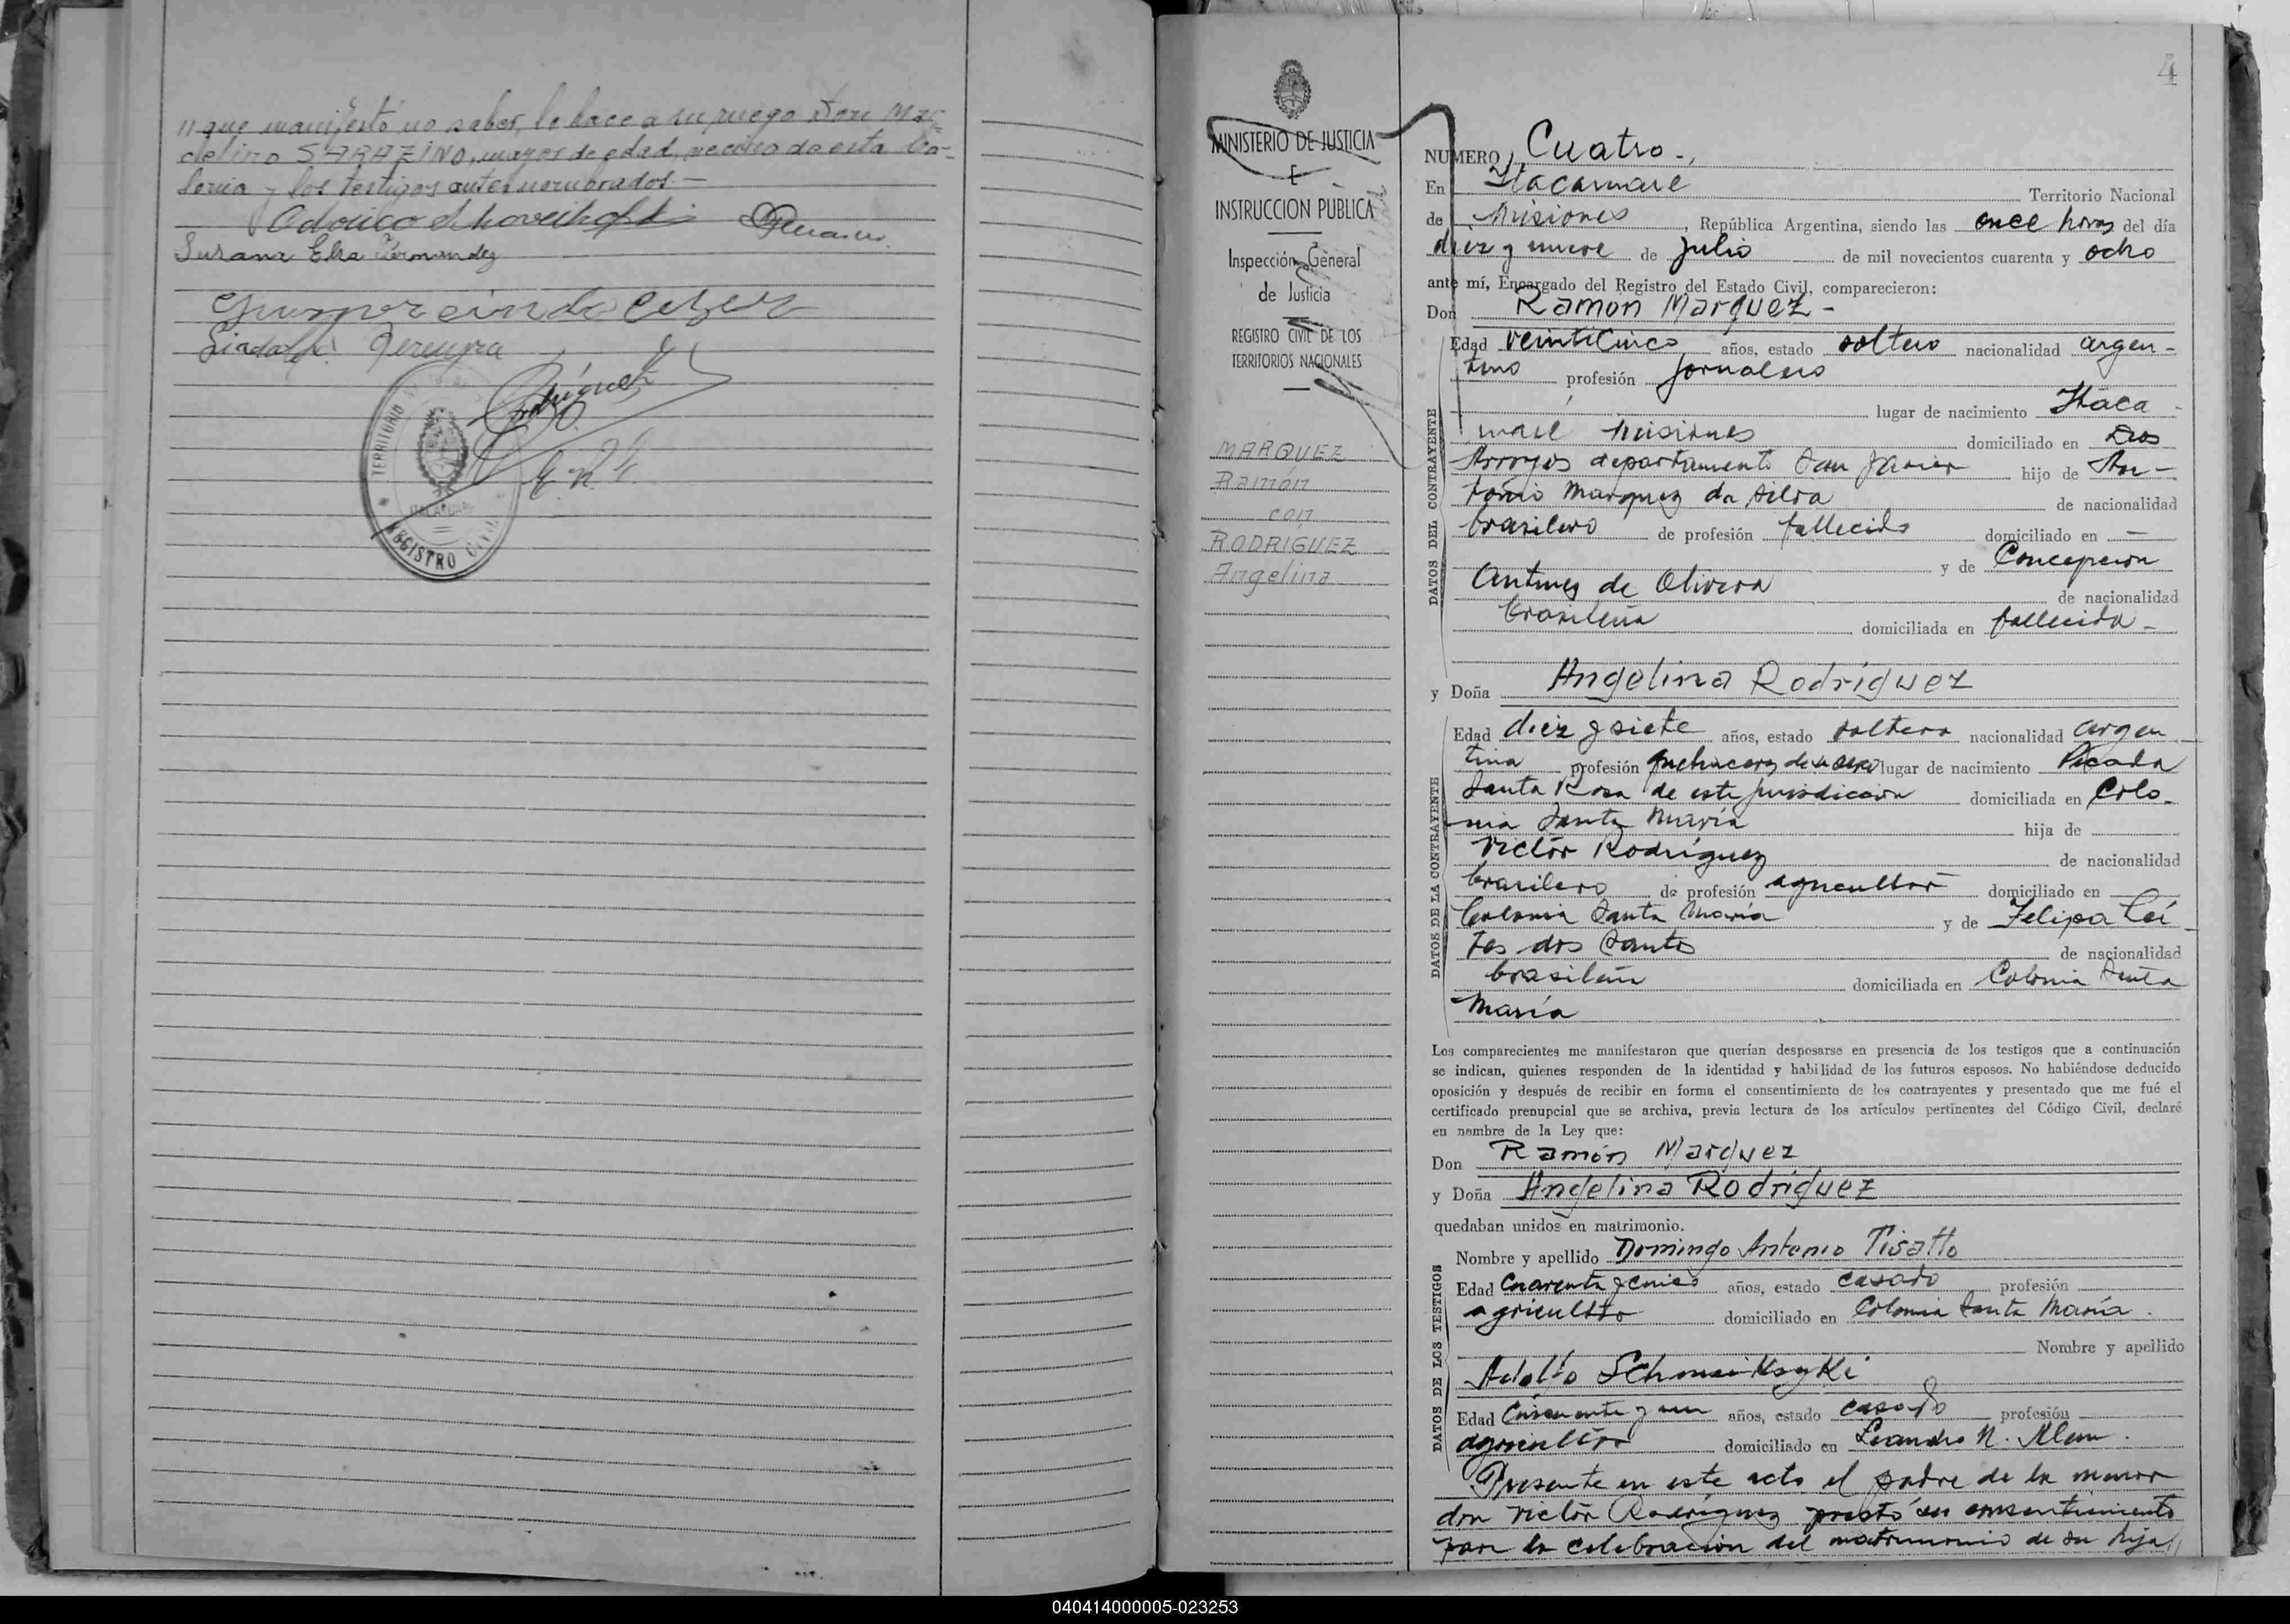 // que manifestó no saber, lo hace a su ruego Don Mar=
celino SARAZINO, mayor de edad, vecino de esta Co-
lonia y los testigos antes nombrados.—
Odorico
Susana Elsa Fernandez
Pereyra
TERRITORIO
REGISTRO CIVIL
E. R. C.
4
MINISTERIO DE JUSTICIA
E
INSTRUCCION PUBLICA
Inspección General
de Justicia
REGISTRO CIVIL DE LOS
TERRITORIOS NACIONALES
MARQUEZ
Ramón
con
RODRIGUEZ
Angelina
NUMERO Cuatro-,
En Itacaruaré Territorio Nacional
de Misiones, República Argentina, siendo las once horas del día
diez y nueve de julio de mil novecientos cuarenta y ocho
ante mí, Encargado del Registro del Estado Civil, comparecieron:
Don Ramón Marquez-
DATOS DEL CONTRAYENTE
Edad veinticinco años, estado soltero nacionalidad argen-
tino profesión jornalero
lugar de nacimiento Itaca-
ruaré Misiones domiciliado en Dos
Arroyos departamento San Javier hijo de An-
tonio Marquez da Silva de nacionalidad
brasilero de profesión fallecido domiciliado en —
y de Concepcion
Antunes de Olivera de nacionalidad
brasileña domiciliada en fallecida-
y Doña Angelina Rodríguez
DATOS DE LA CONTRAYENTE
Edad diez y siete años, estado soltera nacionalidad argen-
tina profesión quehaceres de su sexo lugar de nacimiento Picada
Santa Rosa de esta jurisdiccion domiciliada en Colo-
nia Santa María hija de
Victór Rodríguez de nacionalidad
brasilero de profesión agricultor domiciliado en
Colonia Santa María y de Felipa Lei-
tes dos Santos de nacionalidad
brasileña domiciliada en Colonia Santa
María
Los comparecientes me manifestaron que querían desposarse en presencia de los testigos que a continuación
se indican, quienes responden de la identidad y habilidad de los futuros esposos. No habiéndose deducido
oposición y después de recibir en forma el consentimiento de los contrayentes y presentado que me fué el
certificado prenupcial que se archiva, previa lectura de los artículos pertinentes del Código Civil, declaré
en nombre de la Ley que:
Don Ramón Marquez
y Doña Angelina Rodriguez
quedaban unidos en matrimonio.
DATOS DE LOS TESTIGOS
Nombre y apellido Domingo Antonio Tisatto
Edad Cuarenta y cinco años, estado casado profesión
agricultor domiciliado en Colonia Santa María.
Nombre y apellido
Adolfo
Edad Cincuenta y un años, estado casado profesión
agricultor domiciliado en Leandro N. Alem.
Presente en este acto el padre de la menor
don Victór Rodríguez prestó su consentimiento
para la celebración del matrimonio de su hija,//
040414000005-023253